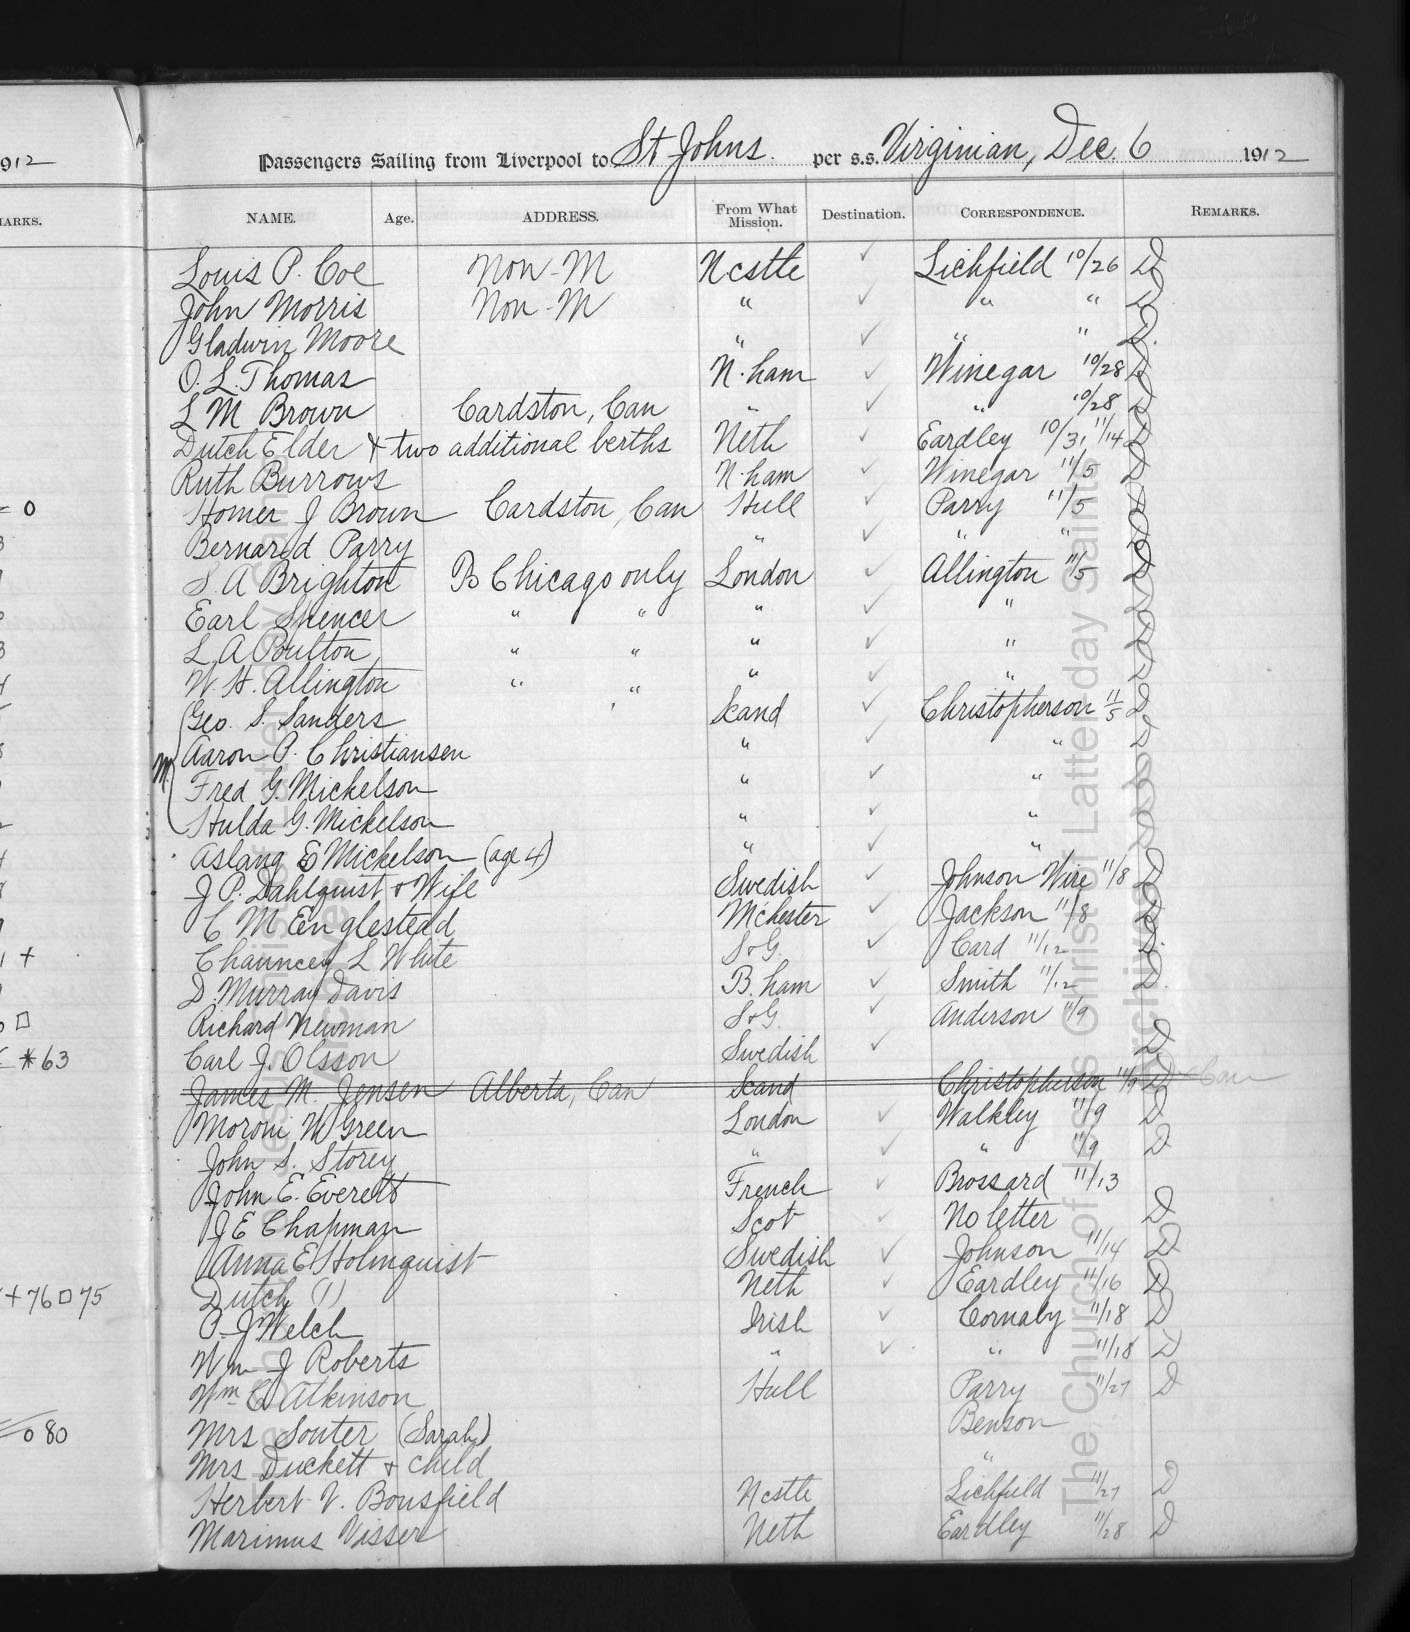 Passengers Sailing from Liverpool to St Johns. per s.s. Virginian, Dec. 6 1912
NAME. Age. ADDRESS. From What Mission. Destination. CORRESPONDENCE. REMARKS.
Louis P. Coe Non-M Ncstle ✓ Lichfield 10/26 D
John Morris Non-M " ✓ " " D
Gladwin Moore " ✓ " " D.
O. L. Thomas N.ham ✓ Winegar 10/28 D
L M Brown Cardston, Can " ✓ " 10/28 D
Dutch Elder & two additional berths Neth ✓ Eardley 10/31, 11/14 D
Ruth Burrows N.ham ✓ Winegar 11/5 D
Homer J Brown Cardston, Can Hull ✓ Parry 11/5 D
Bernard Parry " ✓ " " D
S. A Brighton To Chicago only London ✓ Allington 11/5 D
Earl Spencer " " " ✓ " D
L. A Poulton " " " ✓ " D
W. H. Allington " " " ✓ " D
Geo. S. Sanders Scand ✓ Christopherson 11/5 D
Aaron P. Christiansen " ✓ " D
M Fred G. Mickelson " ✓ " D
Hulda G. Mickelson " ✓ " D
Aslang E Mickelson (age 4) " ✓ " D
J P. Dahlquist & Wife Swedish ✓ Johnson Wire 11/8 D
C M Englestead Mchester ✓ Jackson 11/8 D
Chauncey L White S&G. ✓ Card 11/12 D.
D. Murray Davis B.ham ✓ Smith 11/12 D.
Richard Newman S&G. ✓ Anderson 11/9
Carl J. Olsson Swedish ✓ D
James M. Jensen Alberta, Can Scand Christopherson 11/9 D Can
Moroni W Green London ✓ Walkley 11/9 D
John S. Storey " ✓ " 11/9 D
John E. Everett French ✓ Brossard 11/13
J E Chapman Scot ✓ No letter D
Anna E Holmquist Swedish ✓ Johnson 11/14 D
Dutch (1) Neth ✓ Eardley 11/16 D
P. J Welch Irish ✓ Cornaby 11/18 D
Wm J Roberts " ✓ " 11/18 D
Wm C. Atkinson Hull Parry 11/27 D
Mrs Souter (Sarah) Benson
Mrs Duckett & child "
Herbert V. Bousfield Ncstle Lichfield 11/27 D
Marinus Visser Neth Eardley 11/28 D